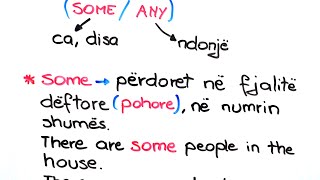 (SOME / ANY)
ca, disa
ndonjë
* Some → përdoret në fjalitë
dëftore (pohore), në numrin
shumës.
There are some people in the
house.